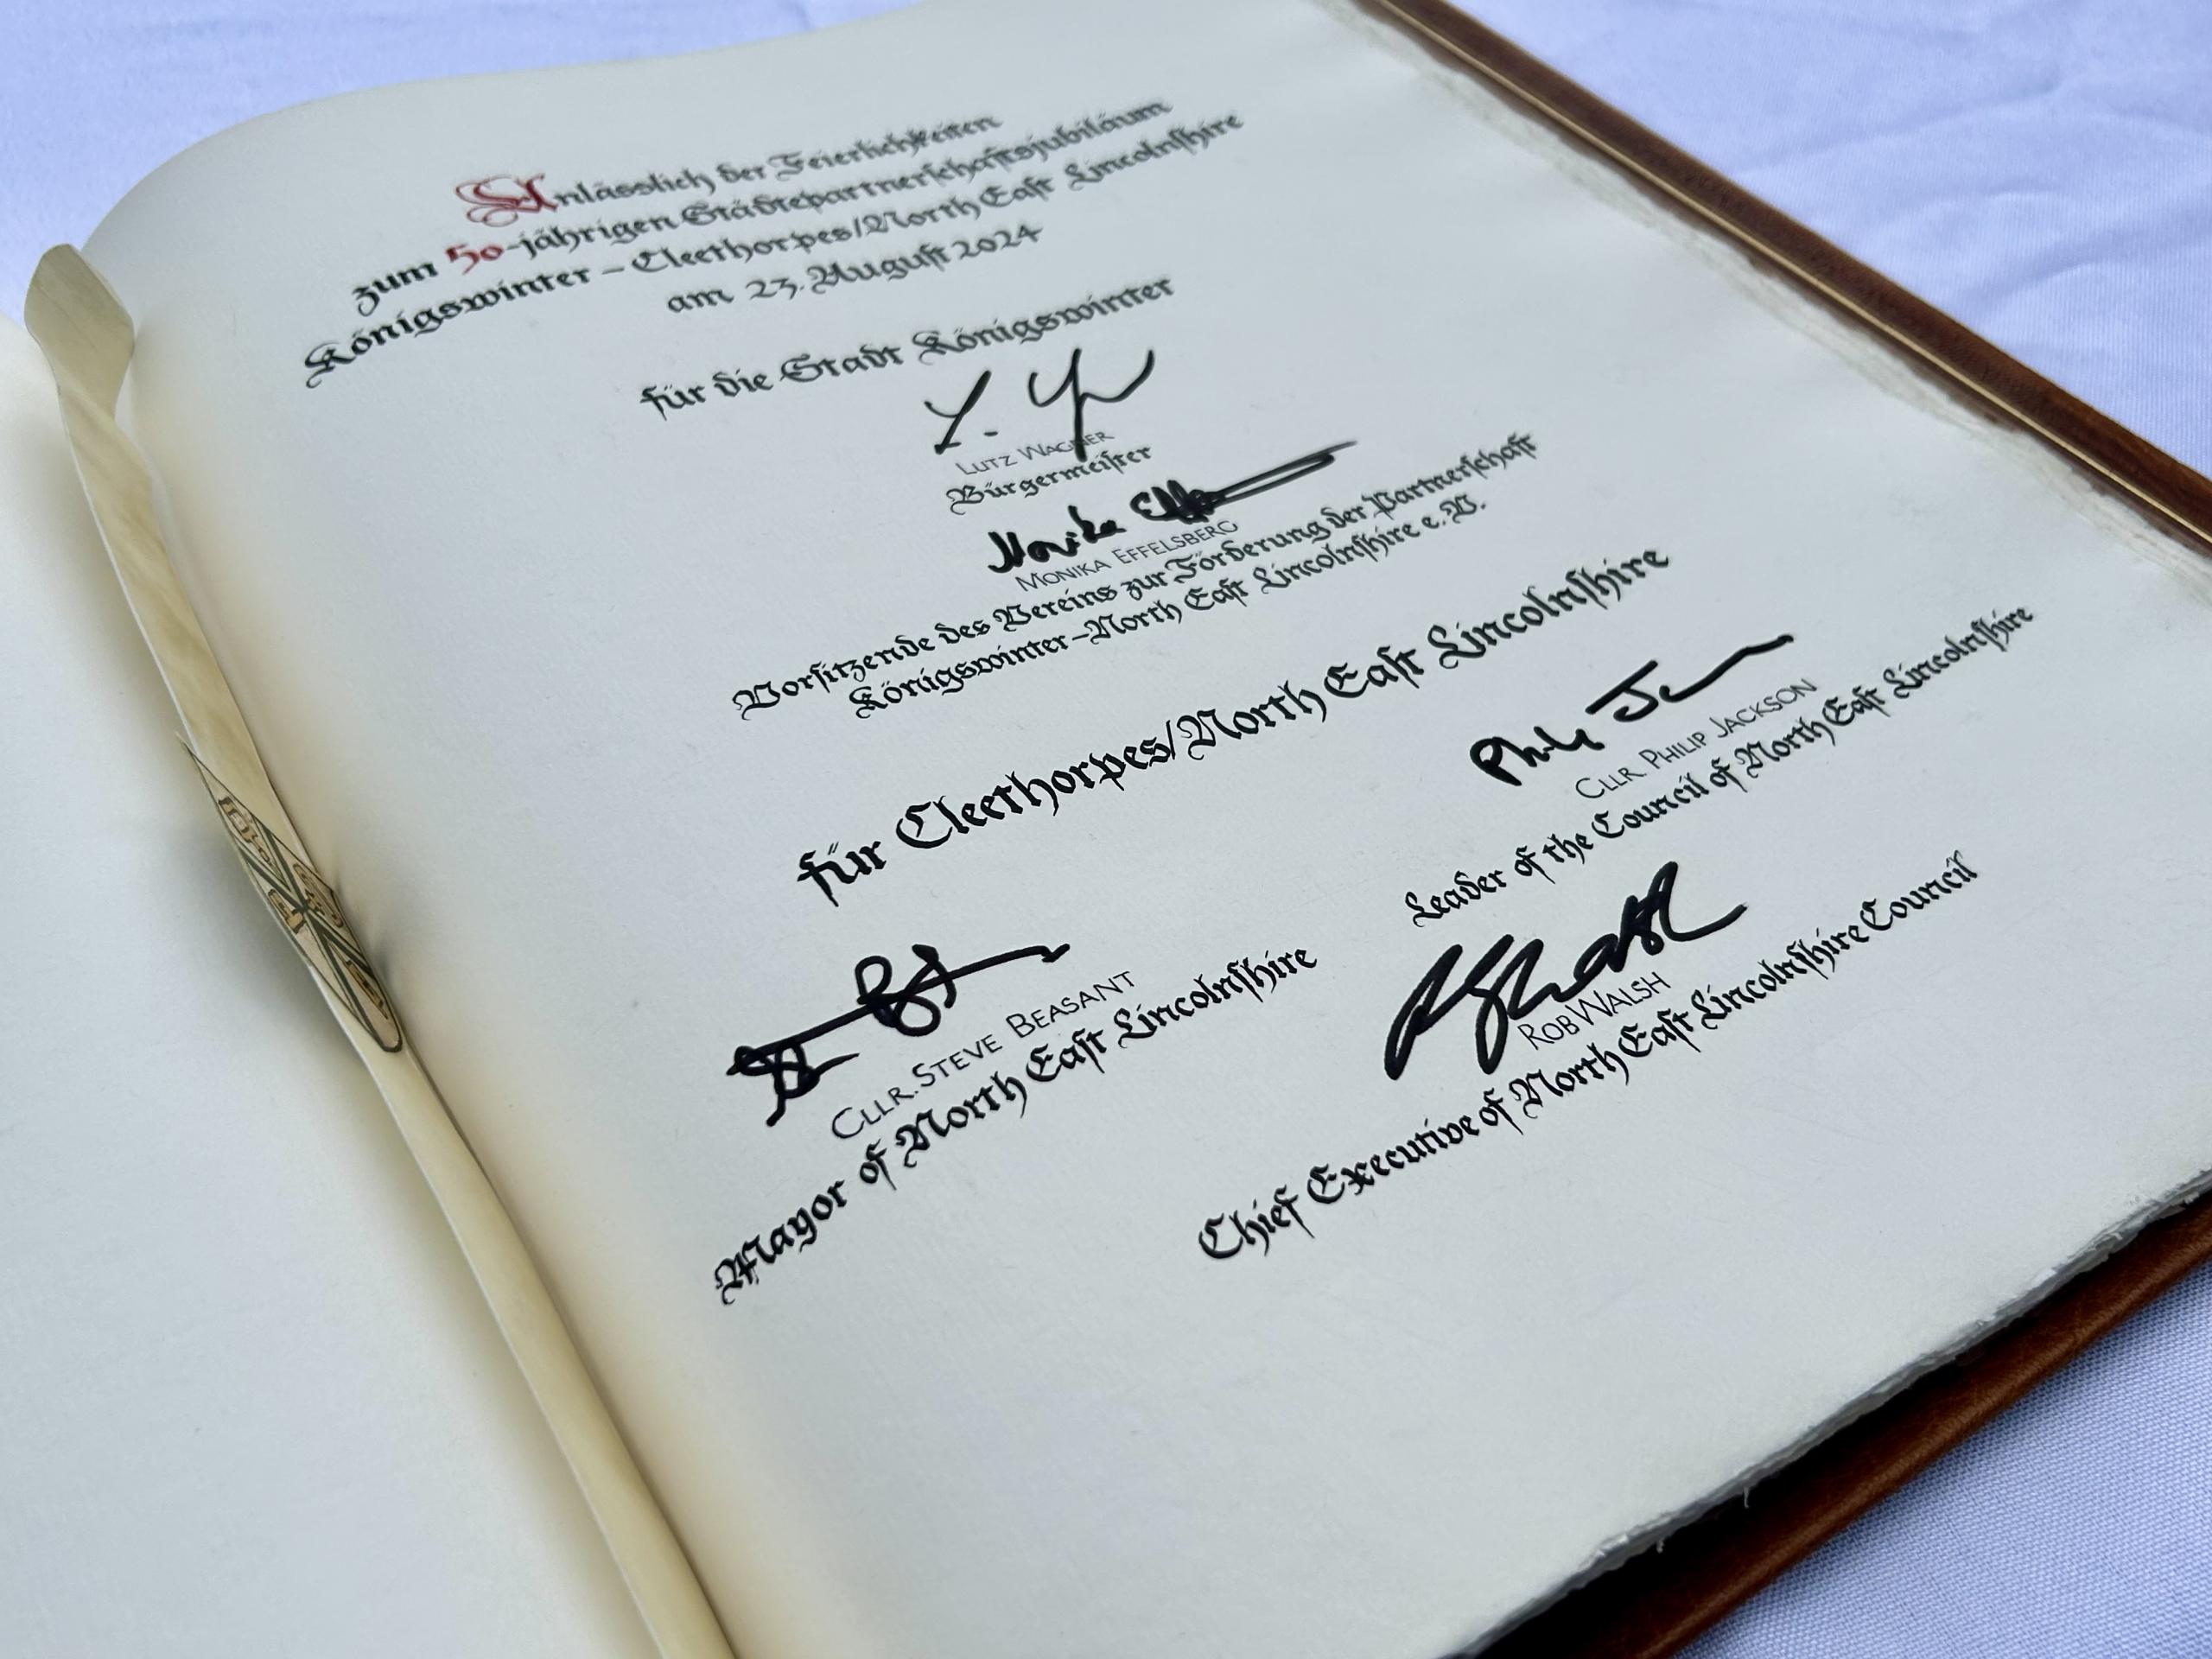 Anlässlich der Feierlichkeiten
zum 50-jährigen Städtepartnerschaftsjubiläum
Königswinter – Cleethorpes/North East Lincolnshire
am 23. August 2024
für die Stadt Königswinter
LUTZ WAGNER
Bürgermeister
Monika
MONIKA EFFELSBERG
Vorsitzende des Vereins zur Förderung der Partnerschaft
Königswinter–North East Lincolnshire e.V.
für Cleethorpes/North East Lincolnshire
CLLR. PHILIP JACKSON
Leader of the Council of North East Lincolnshire
CLLR. STEVE BEASANT
Mayor of North East Lincolnshire
ROB WALSH
Chief Executive of North East Lincolnshire Council